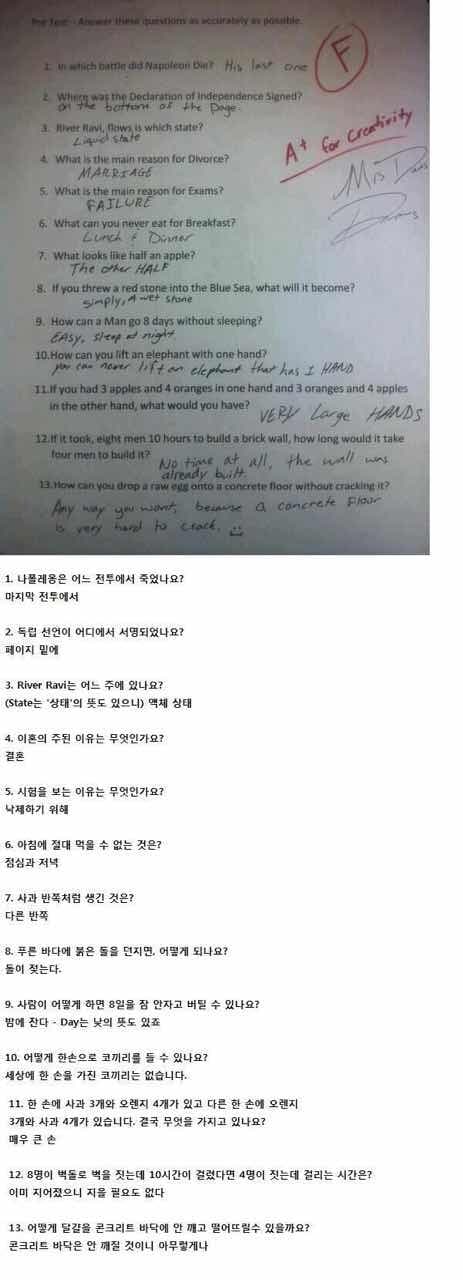 Pre Test - Answer these questions as accurately as possible.
F
1. In which battle did Napoleon Die? His last one
2. Where was the Declaration of Independence Signed?
on the bottom of the Page.
3. River Ravi, flows is which state?
Liquid state
A+ for creativity
4. What is the main reason for Divorce?
MARRIAGE
Mrs
5. What is the main reason for Exams?
FAILURE
6. What can you never eat for Breakfast?
Lunch & Dinner
7. What looks like half an apple?
The other HALF
8. If you threw a red stone into the Blue Sea, what will it become?
simply, A wet stone
9. How can a Man go 8 days without sleeping?
EASY, sleep at night
10.How can you lift an elephant with one hand?
you can never lift an elephant that has 1 HAND
11.If you had 3 apples and 4 oranges in one hand and 3 oranges and 4 apples
in the other hand, what would you have? VERY Large HANDS
12.If it took, eight men 10 hours to build a brick wall, how long would it take
four men to build it? No time at all, the wall was
already built.
13.How can you drop a raw egg onto a concrete floor without cracking it?
Any way you want, because a concrete floor
is very hard to crack.
1. 나폴레옹은 어느 전투에서 죽었나요?
마지막 전투에서
2. 독립 선언이 어디에서 서명되었나요?
페이지 밑에
3. River Ravi는 어느 주에 있나요?
(State는 '상태'의 뜻도 있으니) 액체 상태
4. 이혼의 주된 이유는 무엇인가요?
결혼
5. 시험을 보는 이유는 무엇인가요?
낙제하기 위해
6. 아침에 절대 먹을 수 없는 것은?
점심과 저녁
7. 사과 반쪽처럼 생긴 것은?
다른 반쪽
8. 푸른 바다에 붉은 돌을 던지면, 어떻게 되나요?
돌이 젖는다.
9. 사람이 어떻게 하면 8일을 잠 안자고 버틸 수 있나요?
밤에 잔다 - Day는 낮의 뜻도 있죠
10. 어떻게 한손으로 코끼리를 들 수 있나요?
세상에 한 손을 가진 코끼리는 없습니다.
11. 한 손에 사과 3개와 오렌지 4개가 있고 다른 한 손에 오렌지
3개와 사과 4개가 있습니다. 결국 무엇을 가지고 있나요?
매우 큰 손
12. 8명이 벽돌로 벽을 짓는데 10시간이 걸렸다면 4명이 짓는데 걸리는 시간은?
이미 지어졌으니 지을 필요도 없다
13. 어떻게 달걀을 콘크리트 바닥에 안 깨고 떨어뜨릴수 있을까요?
콘크리트 바닥은 안 깨질 것이니 아무렇게나